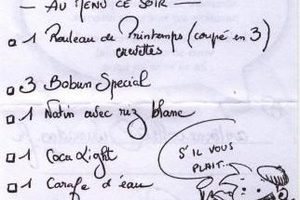 — AU MENU CE SOIR —
1 Rouleau de Printemps (coupé en 3)
crevettes
3 Bobun Special
1 Natin avec riz blanc
1 Coca Light
1 Carafe d'eau
S'IL VOUS
PLAIT...